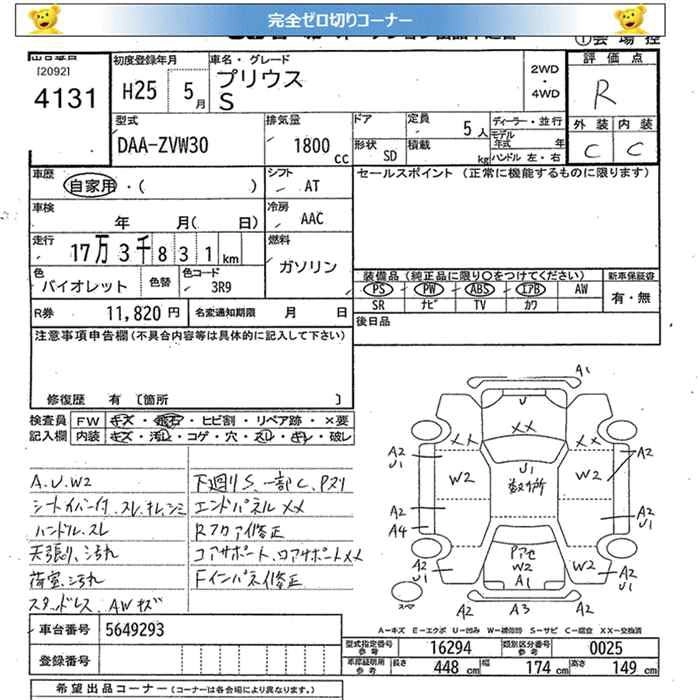 完全ゼロ切りコーナー
[2092]
4131
初度登録年月
H25 5月
車名・グレード
プリウス
S
2WD
・
4WD
評価点
R
外装 内装
C C
型式
DAA-ZVW30
排気量
1800cc
ドア
形状 SD
定員
5人
積載
kg
ディーラー・並行
モデル年式 年
ハンドル 左・右
車歴
自家用・( )
シフト
AT
セールスポイント (正常に機能するものに限ります)
車検
年 月( 日)
冷房
AAC
走行
17万3千831km
燃料
ガソリン
色
バイオレット
色替
色コード
3R9
装備品(純正品に限り○をつけてください)
PS PW ABS エアB AW
SR ナビ TV カワ
新車保証書
有・無
R券 11,820円
名変通知期限 月 日
後日品
注意事項申告欄(不具合内容等は具体的に記入して下さい)
修復歴 有 〔箇所 〕
検査員
記入欄
FW キズ・飛石・ヒビ割・リペア跡・×要
内装 キズ・汚レ・コゲ・穴・スレ・キレ・破レ
A.U.W2
ハンドル.スレ
スタッドレス、AWキズ
下廻りS、一部C、Pズリ
エンドパネルXX
コアサポート、ロアサポートXX
Fインパネイ修正
A1
U
XX
XX
XX
A2
U1
W2
U1
数ヶ所
W2
A2
U1
A2
A4
A2
U1
A2
U1
W2
A1
W2
A2
U1
A2
A3
A2
A-キズ E-エクボ U-凹み W-補修跡 S-サビ C-腐食 XX-交換済
車台番号 5649293
登録番号
型式指定番号
参考
16294
類別区分番号
参考
0025
車庫証明用
参考
長さ 448cm 幅 174cm 高さ 149cm
希望出品コーナー(コーナーは各会場により異なります。)